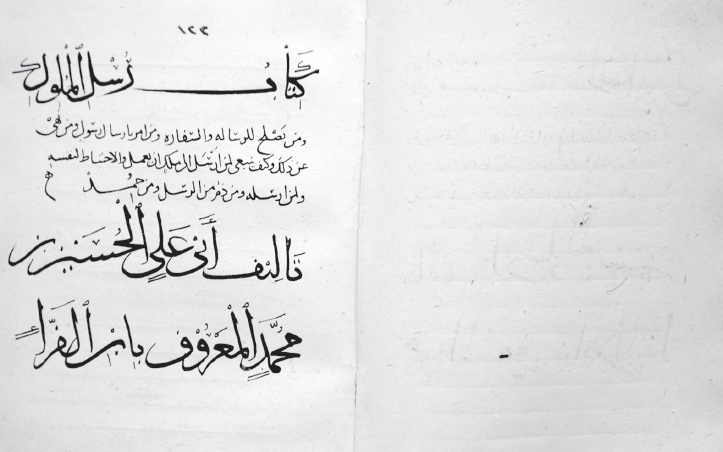 ١٢٣
كتاب رسل الملوك
ومن يصلح للرسالة والسفارة ومن امر بارسال رسول ومن نهى
عن ذلك وكيف ينبغي لمن ارسل الى ملك ان يعمل والاحتياط لنفسه
ولمن ارسله ومن ذم من الرسل ومن حمد
تاليف أبي علي الحسين بن
محمد المعروف بابن الفراء